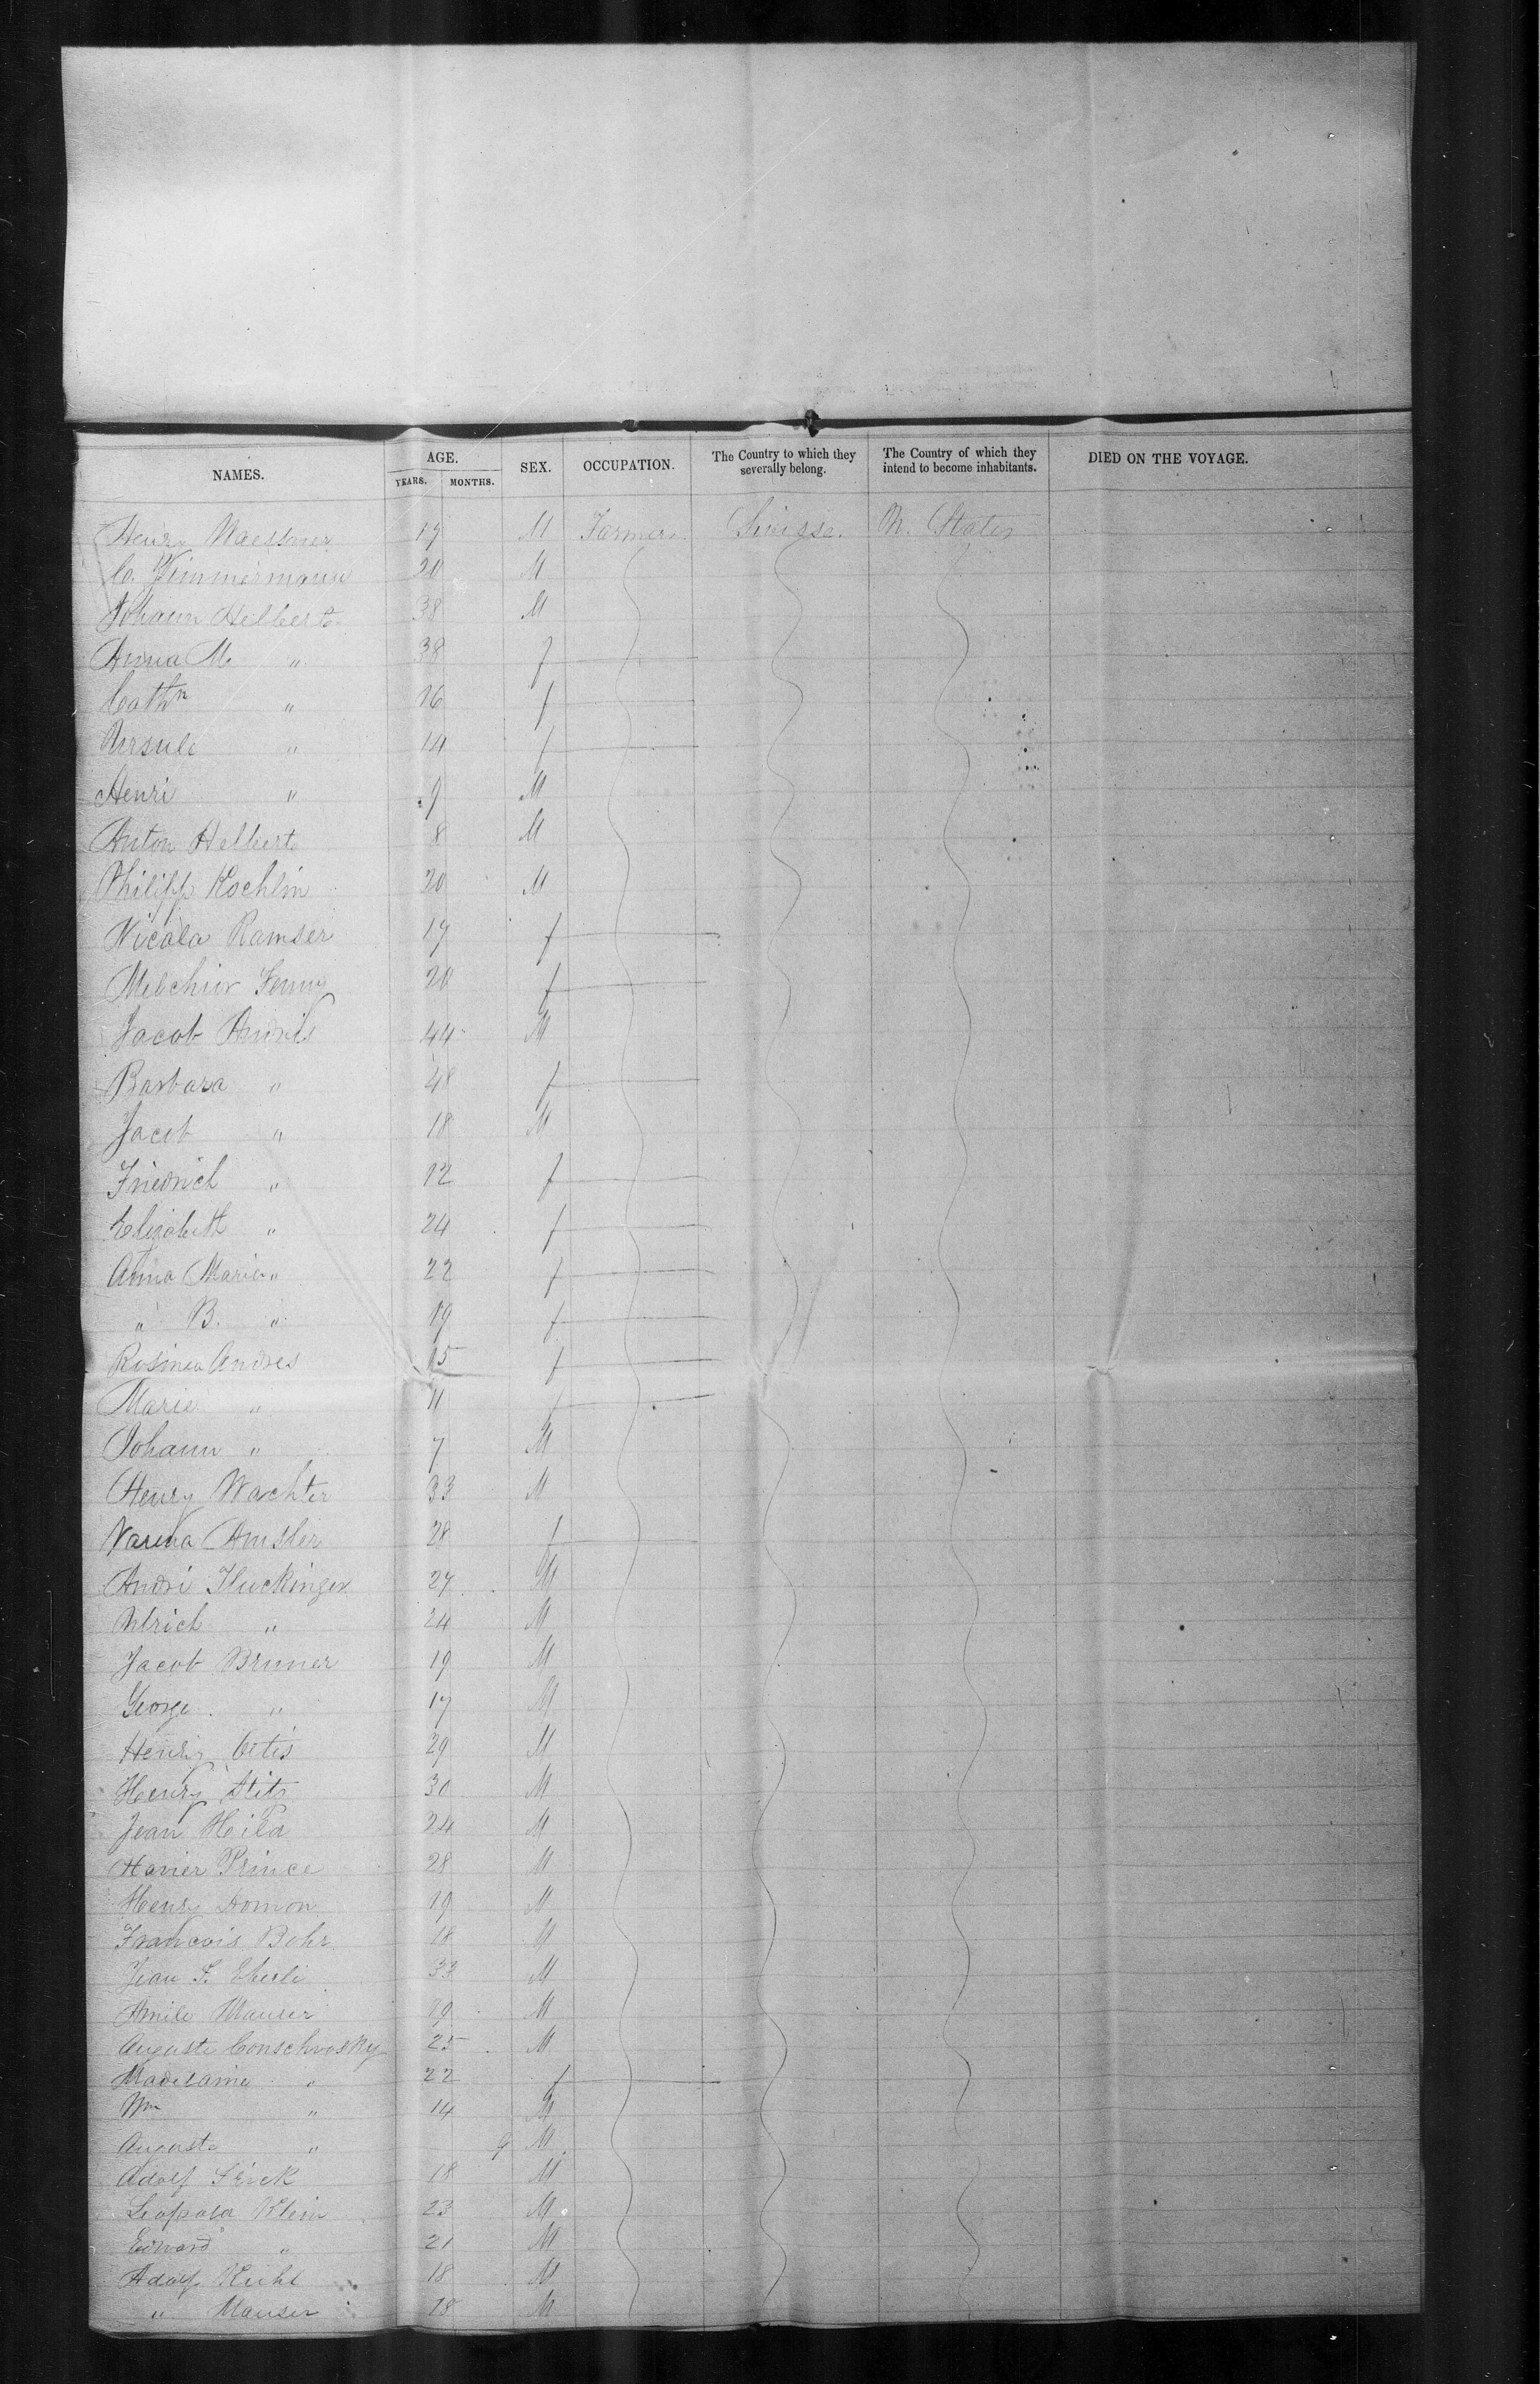 NAMES. AGE. SEX. OCCUPATION. The Country to which they severally belong. The Country of which they intend to become inhabitants. DIED ON THE VOYAGE.
YEARS. MONTHS.
Henry 17 M Farmer Suisse. U. States
C. Zimmermann 20 M
Johann Helbert 38 M
Anna M. " 38 f
Cathn " 16 f
Ursule " 14 f
Henri " 9 M
Anton Helbert 8 M
Philipp Kochlin 20 M
Nicola Ramser 17 f
Melchior Jenny 20 f
Jacob Andres 44 M
Barbara " 48 f
Jacob " 18 M
Friedrich " 12 f
Elizabeth " 24 f
Anna Marie " 22 f
" B. " 19 f
Rosina Andres 15 f
Marie " 11 f
Johann " 7 M
Henry Wachter 33 M
Varena Amsler 28 f
Andri Fluckinger 27 M
Ulrich " 24 M
Jacob Bruner 19 M
George " 17 M
Henry Oetis 29 M
Henry 30 M
Jean 24 M
Xavier Prince 28 M
Henry Domon 19 M
Francois Bohr 18 M
Jean S. Eberli 33 M
Amile Mauser 19 M
Auguste Conschrosky 25 M
Madelaine " 22 f
Wm " 14 M
Auguste " 9 M
Adolf 18 M
Leopold Klein 23 M
Edward " 21 M
Adolf Kuhl 18 M
" Mauser 18 M